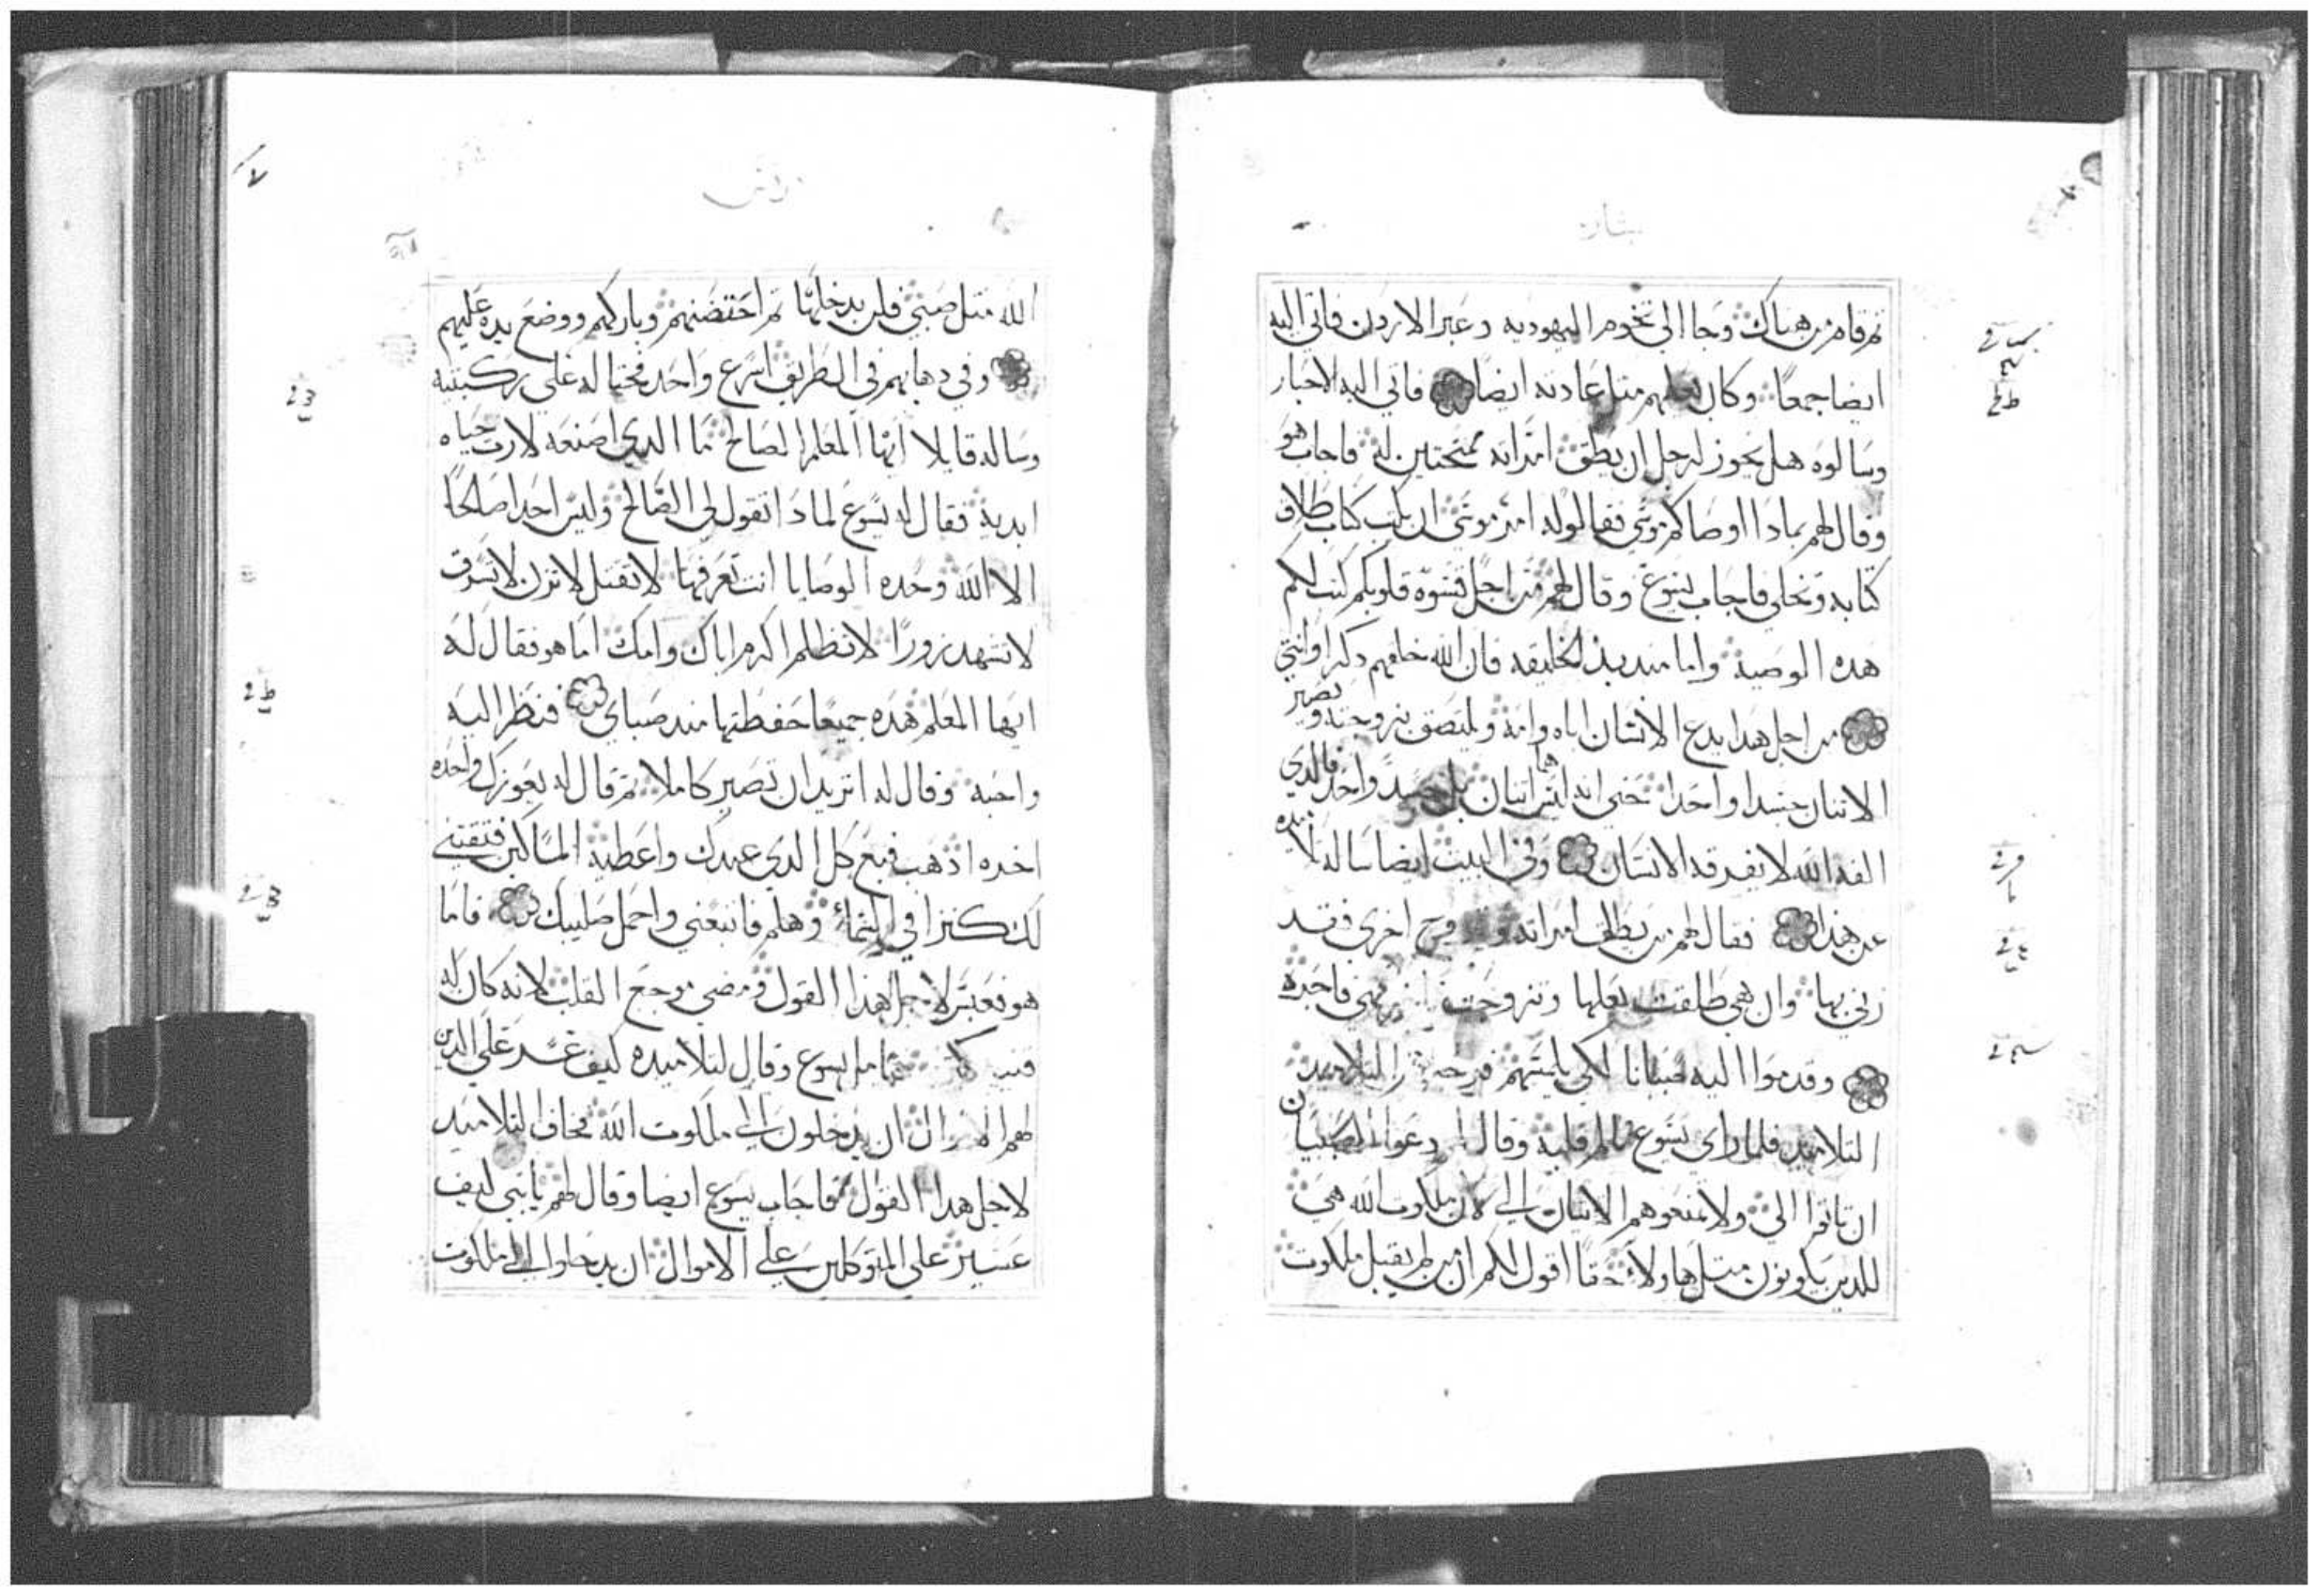 بشاره
ثم قام من هناك وجا الى تخوم اليهوديه وعبر الاردن فاتى اليه
ايضا جمعا وكان يعلمهم مثل عادته ايضا فاتى اليه الاحبار
وسالوه هل يجوز لرجل ان يطلق امراته ممتحنين له فاجاب هو
وقال لهم بمادا اوصاكم موسى فقالوا له امر موسى ان يكتب كتاب طلاق
كتابه وتخلى فاجاب يسوع وقال لهم من اجل قسوه قلوبكم كتب لكم
هده الوصيه واما مند بدا الخليقه فان الله خلقهم دكرا وانثى
من اجل هدا يدع الانسان اباه وامه ويلتصق بزوجته ويصير
الاتنان جسدا واحدا حتى انه ليس هما اتنان بل جسد واحد فالدي
الفه الله لا يفرقه الانسان وفي البيت ايضا ساله تلاميده
عن هدا فقال لهم من يطلق امراته وتزوج اخرى فقد
زنى بها وان هي طلقت بعلها وتزوجت فهي فاجره
وقدموا اليه صبيانا لكي يلمسهم فزجر التلاميد
التلاميد فلما راى يسوع تالم قلبه وقال دعوا الصبيان
ان ياتوا الي ولا تمنعوهم الاتيان الي لان ملكوت الله هي
للدين يكونون متل هاولاء حقا اقول لكم ان من لم يقبل ملكوت
مرقس
الله متل صبي فلن يدخلها ثم احتضنهم وباركهم ووضع يده عليهم
وفي دهابهم في الطريق اسرع واحد فجثا له على ركبتيه
وساله قايلا ايها المعلم الصالح ما الدي اصنعه لارث حياه
ابديه فقال له يسوع لمادا تقول لي الصالح وليس احد صالحا
الا الله وحده الوصايا انت تعرفها لا تقتل لا تزن لا تسرق
لا تشهد زورا لا تظلم اكرم اباك وامك اما هو فقال له
ايها المعلم هده جميعا حفظتها مند صباي فنظر اليه
واحبه وقال له اتريد ان تصير كاملا ثم قال له يعوزك واحده
اخده ادهب فبع كل الدي عندك واعطيه المساكين فتقتني
لك كنزا في السماء وهلم فاتبعني واحمل صليبك فاما
هو فعبس لاجل هدا القول ومضى موجع القلب لانه كان له
يسوع وقال لتلاميده كيف عسر على الدين
لهم الاموال ان يدخلون الى ملكوت الله فخاف التلاميد
لاجل هدا القول فاجاب يسوع ايضا وقال لهم يا بني كيف
عسير على المتوكلين على الاموال ان يدخلوا الى ملكوت